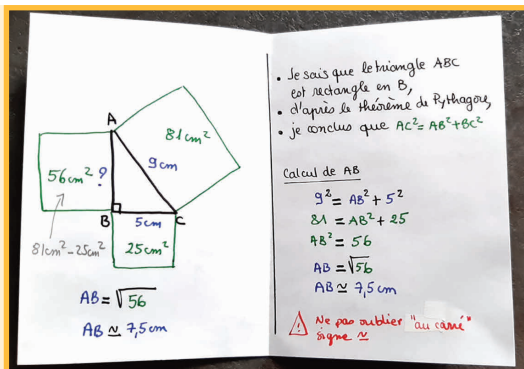 A
81cm²
56cm² ?
9cm
B
5cm
C
81cm²-25cm²
25cm²
AB = √56
AB ≃ 7,5cm
• Je sais que le triangle ABC
est rectangle en B,
• d'après le théorème de Pythagore,
• je conclus que AC² = AB² + BC²
Calcul de AB
9² = AB² + 5²
81 = AB² + 25
AB² = 56
AB = √56
AB ≃ 7,5cm
! Ne pas oublier "au carré"
signe ≃